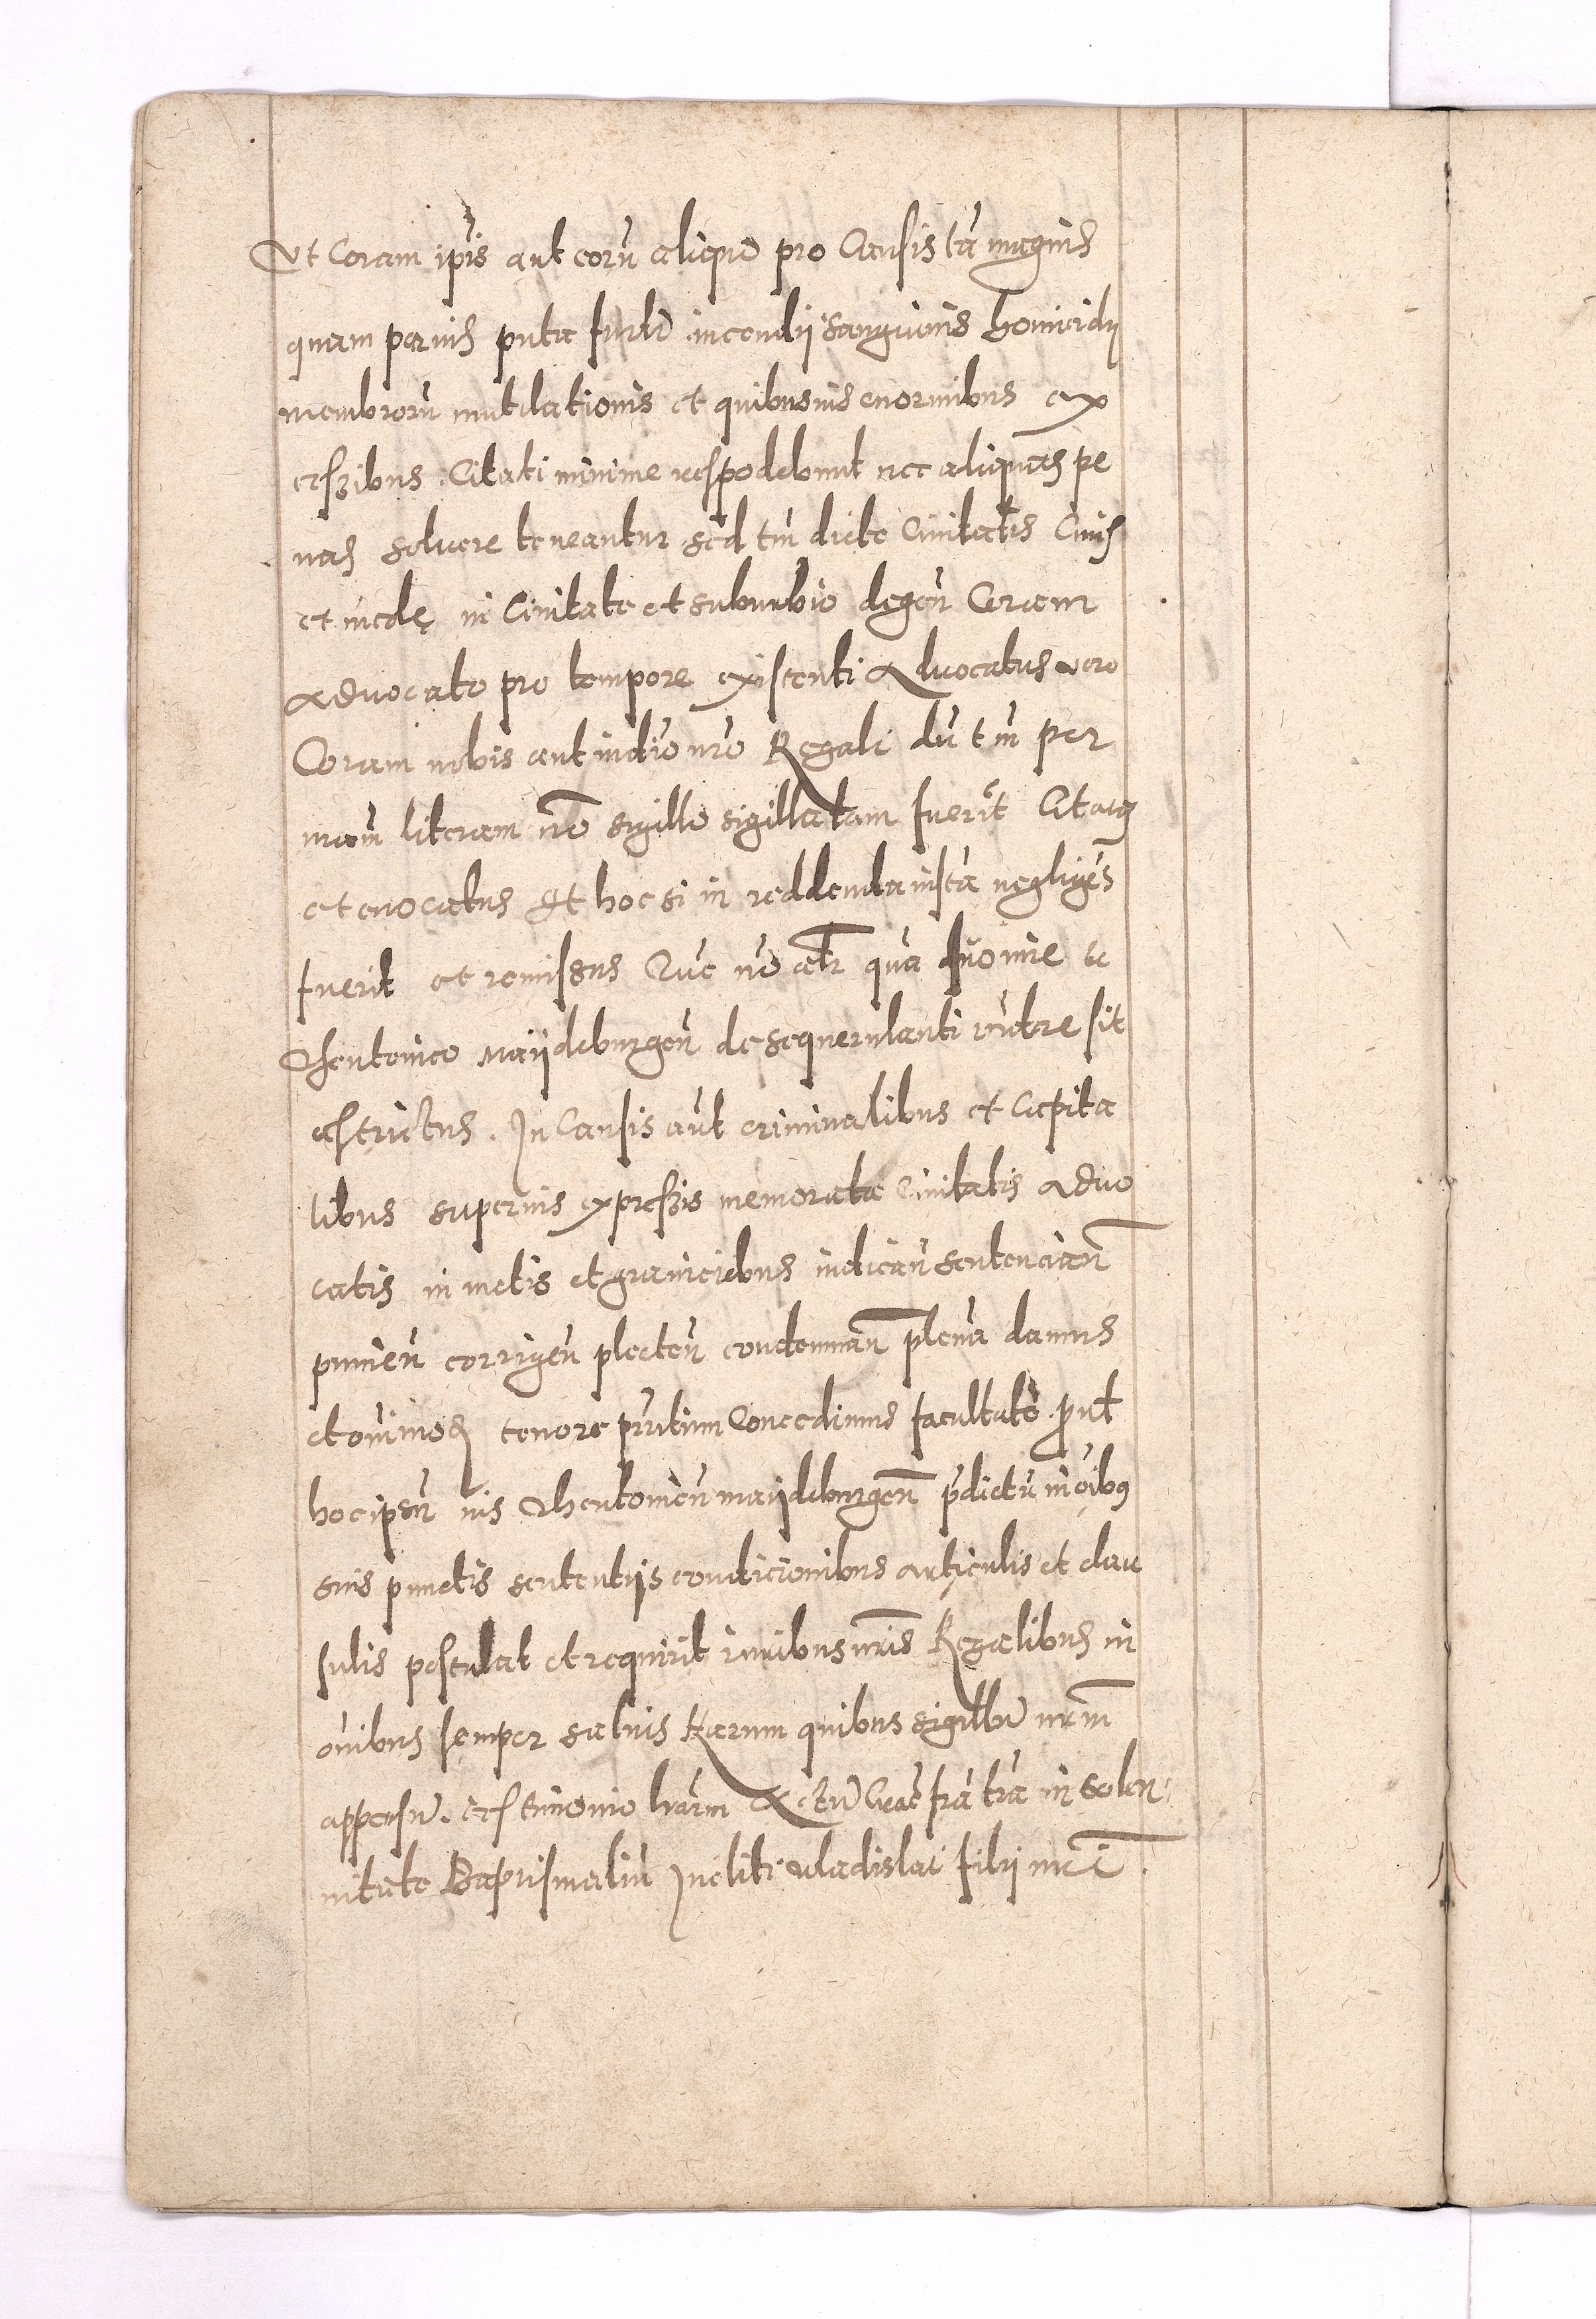 Ut Coram ip̄is aut eorū aliquo pro Causis tā magnis
quam parvis puta furtū incendij sanguinis homicidij
membrorū mutilationis et quibusvis enormibus ex
cessibus Citati minime respōdebunt nec aliquas pe
nas solvere teneantur sed tm̄ dicte Civitatis Cives
et incolę in Civitate et suburbio degen̄ Coram
Advocato pro tempore existenti Advocatus vero
Coram nobis aut iudio n̄ro Regali dū tm̄ per
n̄ram literam n̄ro sigillo sigillatam fuerit Citatus
et evocatus Et hoc si in reddenda iusta negligēs
fuerit et remissus Tūc nō alr̄ quā suo iure
Theutonico Maijdeburgen̄ de se querulanti rn̄dere sit
astrictus. In Causis aūt criminalibus et Capita
libus superius expressis memorate Civitatis Advo
catis in metis et graniciebus iudican̄ sentencian̄
punien̄ corrigen̄ plecten̄ condemnan̄ plenā damus
et omimoḋ tenore pn̄tium Concedimus facultatē prout
hoc ipsum ius Theutonicū maijdeburgen̄ p̄dictū in oībus
suis punctis sententijs condicionibus articulis et clau
sulis postulat et requirit iuribus n̄ris Regalibus in
om̄ibus semper salvis Harum quibus sigillū n̄rm̄
appensū est testimonio l̄rarum Actū Crac̄ fr̄ā tr̄ā in solen
nitate Baptismaliū Incliti Uladislai filij n̄ri